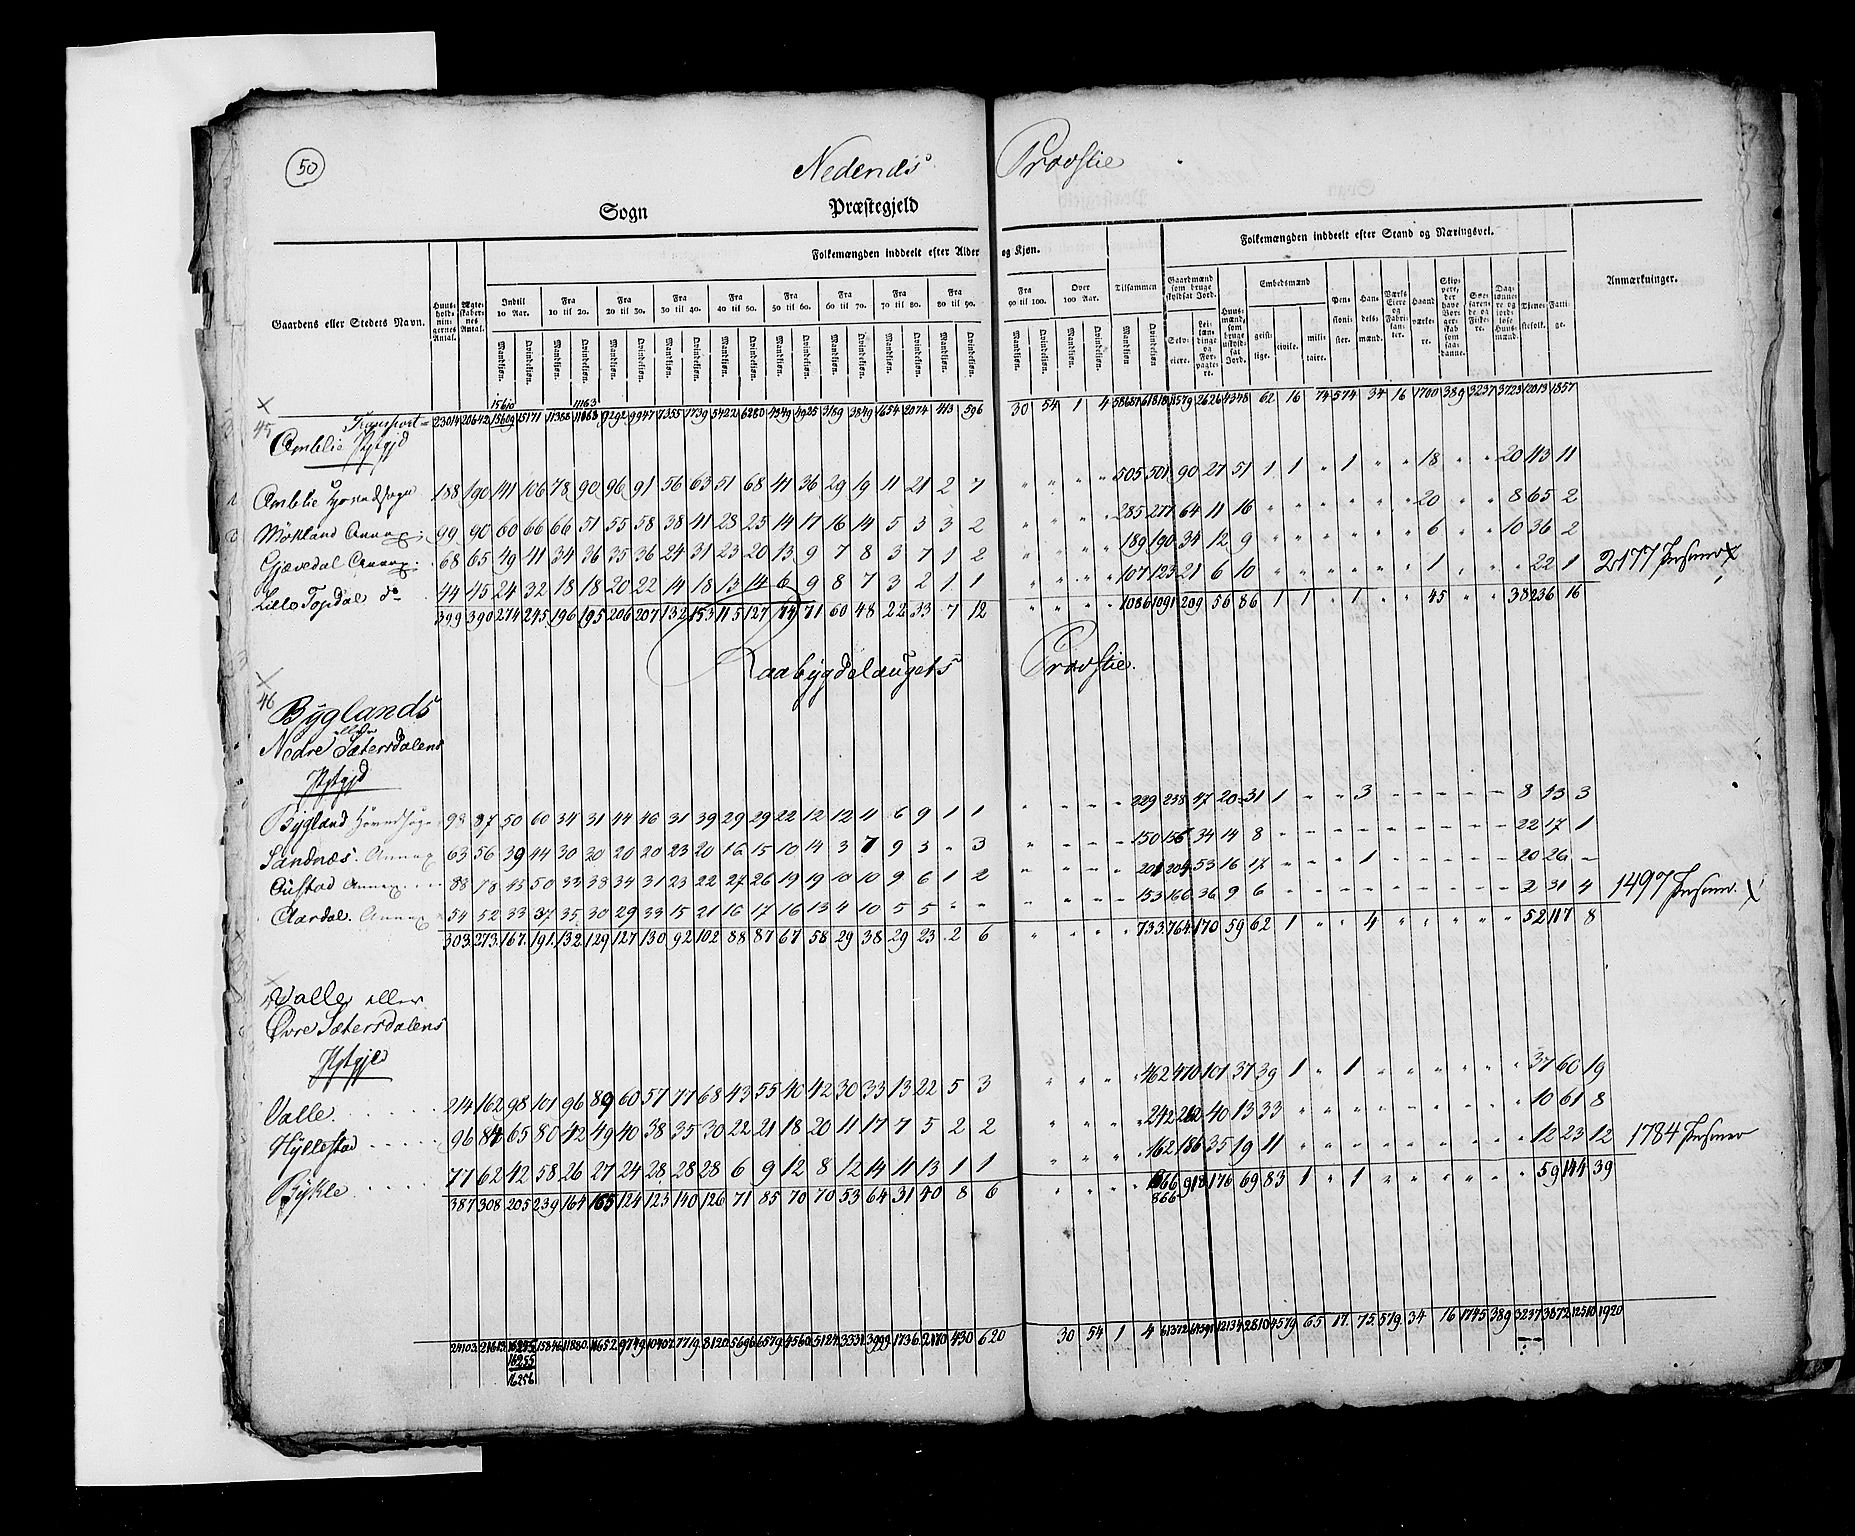 50
Nedenæs Provstie
Sogn Præstegjeld
Gaardens eller Stedets Navn.
Huus-holdningernes Antal.
Ægteskabernes Antal.
Folkemængden inddeelt efter Alder og Kjøn.
Indtil 10 Aar. Fra 10 til 20. Fra 20 til 30. Fra 30 til 40. Fra 40 til 50. Fra 50 til 60. Fra 60 til 70. Fra 70 til 80. Fra 80 til 90. Fra 90 til 100. Over 100 Aar. Tilsammen
Mandkjøn. Qvindekjøn.
Folkemængden inddeelt efter Stand og Næringsvei.
Gaardmænd som bruge skyldsat Jord. Selveiere. Leilændinge og Forpagtere.
Huusmænd, som bruge uskyldsat Jord.
Embedsmænd geistlige. civile. militaire.
Pensionister. Handelsmænd. Værks Eiere og Fabrikanter. Haandværkere.
Skippere, der have Borgerskab som saadanne. Søefarende og Fiskere. Daglønnere og jordløse Huusmænd. Tjenestefolk. Fattige.
Anmærkninger.
15610 11163
Transport = 23014 20642 15609 15171 11388 11163 9292 9947 7355 7739 5422 6280 4349 4925 3189 3849 1654 2074 413 596 30 54 1 4 58687 61818 11579 2626 4348 62 16 74 574 34 16 1700 389 3237 3723 12013 1857
45
Omblie Pstgjd
Omblie Hovedsogn 188 190 141 106 78 90 96 91 56 63 51 68 41 36 29 19 11 21 2 7 " " " " 505 501 90 27 51 1 1 " 1 " " 18 " " 20 113 11
Mökland Annex: 99 90 60 66 66 51 55 58 38 41 28 25 14 17 16 14 5 3 3 2 " " " " 285 277 64 11 16 " " " " " " 20 " " 8 65 2
Gjævedal Annex: 68 65 49 41 34 36 35 36 24 31 23 20 13 9 7 8 3 7 1 2 " " " " 189 190 34 12 9 " " " " " " 6 " " 10 36 2
Lille Topdal do 44 45 24 32 18 18 20 22 14 18 13 14 6 9 8 7 3 2 1 1 " " " " 107 123 21 6 10 " " " " " " 1 " " " 22 1 2177 Personer X
399 390 274 245 196 195 206 207 132 153 115 127 74 71 60 48 22 33 7 12 " " " " 1086 1091 209 56 86 1 1 " 1 " " 45 " " 38 236 16
Raabygdelaugets Provstie.
46
Byglands
eller
Nedre Sætersdalens
Pstgjd
Bygland Hovedsogn 98 87 50 60 34 31 44 46 31 39 29 29 22 12 12 11 6 9 1 1 " " " " 229 238 47 20 31 1 " " 3 " " " " " 8 43 3
Sandnæs. Annex 63 56 39 44 30 30 20 20 23 20 16 15 10 14 3 7 9 3 " 3 " " " " 150 156 34 14 8 " " " " " " " " " 22 17 1
Austad Annex 88 78 45 50 33 38 34 31 23 22 27 26 19 19 10 10 9 6 1 2 " " " " 201 204 53 16 17 " " " 1 " " " " " 20 26 "
Aardal. Annex 54 52 33 37 35 30 29 33 15 21 16 17 16 13 4 10 5 5 " " " " " " 153 166 36 9 6 " " " " " " " " " 2 31 4 1497 Personer X
303 273 167 191 132 129 127 130 92 102 88 87 67 58 29 38 29 23 2 6 " " " " 733 764 170 59 62 1 " " 4 " " " " " 52 117 8
Valle eller
Øvre Sætersdalens
Pstgjld
Valle. 214 162 98 101 96 89 60 57 77 68 43 55 40 42 30 33 13 22 5 3 " " " " 462 470 101 37 39 1 " 1 " " " " " " 37 60 19
Hyllestad 96 84 65 80 42 49 40 38 35 30 22 21 18 20 11 17 7 5 2 2 " " " " 242 262 40 13 33 " " " " " " " " " 10 61 8
Bykle 77 62 42 58 26 27 24 28 28 28 6 9 12 8 12 14 11 13 1 1 " " " " 162 186 35 19 11 " " " " " " " " " 12 23 12 1784 Personer
387 308 205 239 164 165 124 123 140 126 71 85 70 70 53 64 31 40 8 6 " " " " 866 918 176 69 83 1 " 1 " " " " " " 59 144 39
866
24103 21613 16255 15846 11880 11652 9749 10407 7719 8120 5696 6579 4560 5124 3331 3999 1736 2170 430 620 30 54 1 4 61372 64591 12134 2810 4579 65 17 75 579 34 16 1745 389 3237 3872 12510 1920
16255
16256